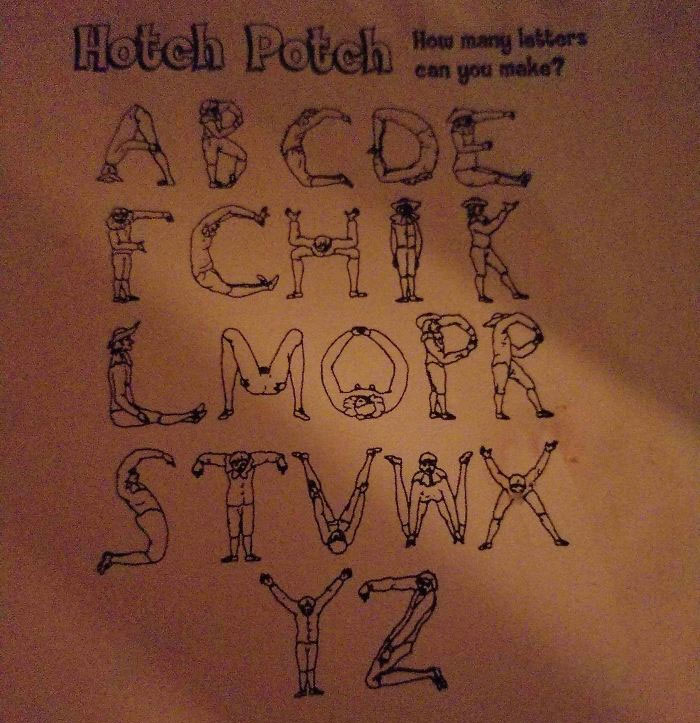 Hotch Potch
How many letters
can you make?
A B C D E
F G H I K
L M O P R
S T V W X
Y Z